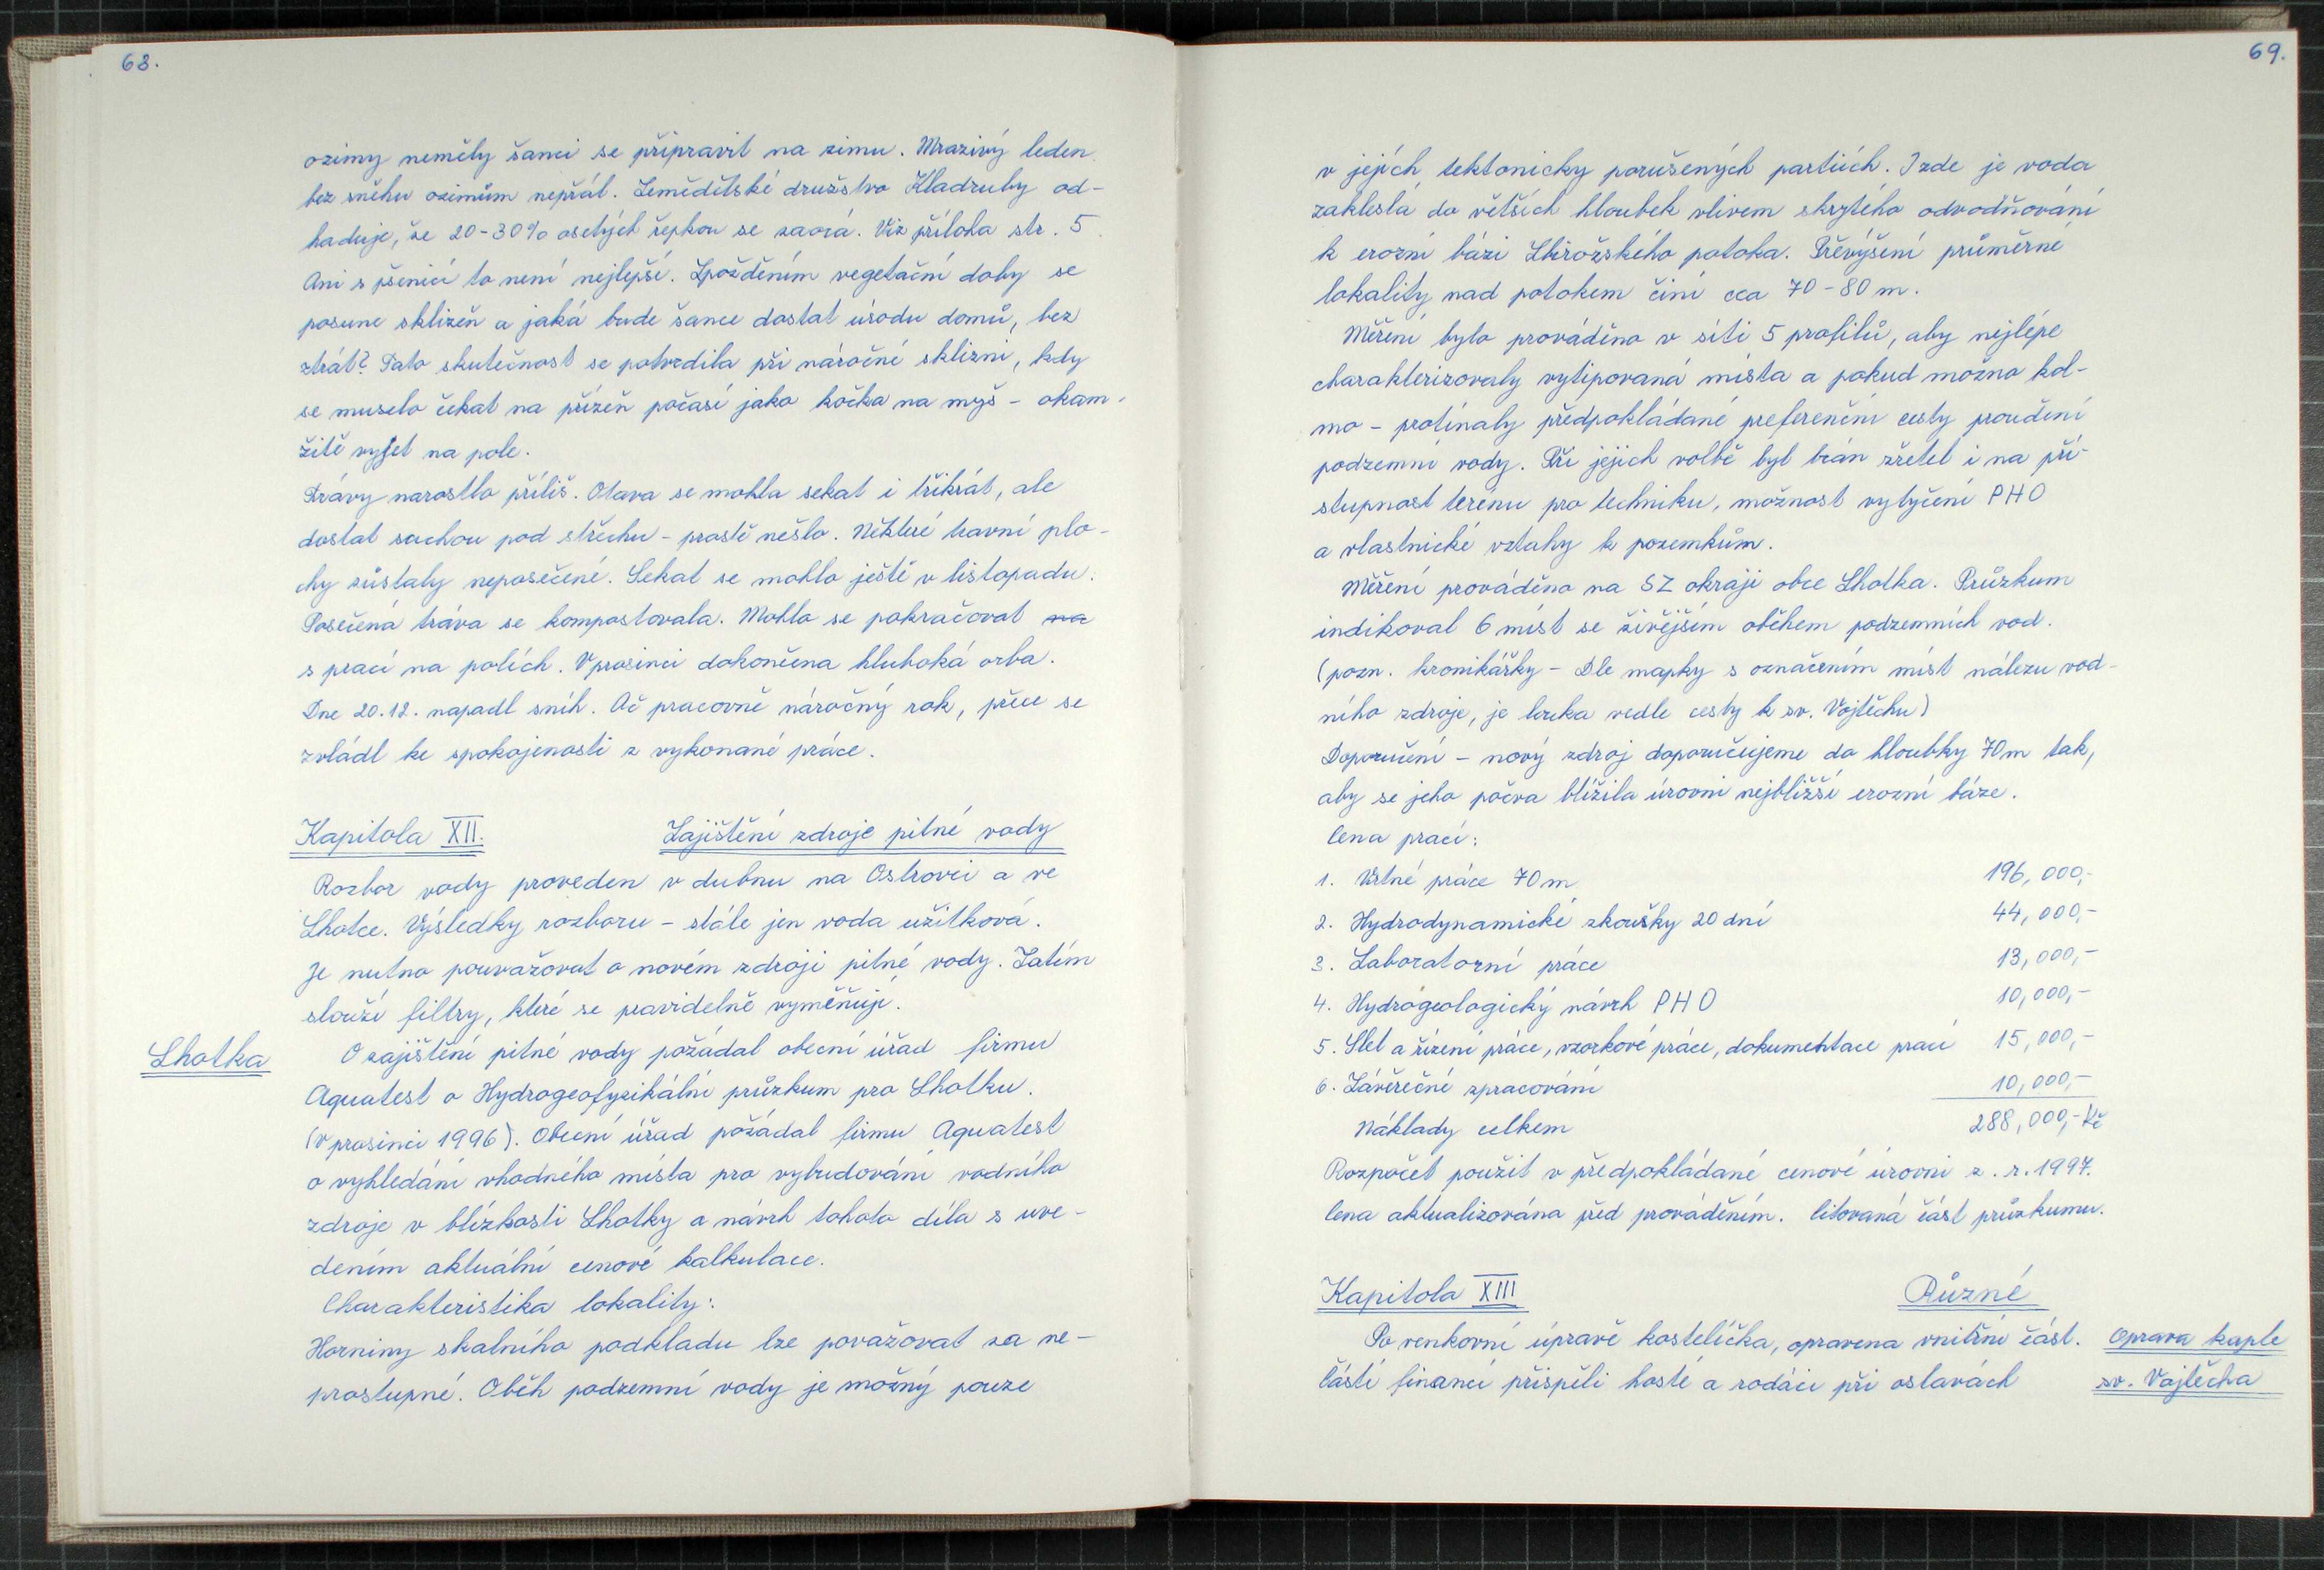 68.
ozimy neměly šanci se připravit na zimu. Mrazivý leden
bez sněhu ozimům nepřál. Zemědělské družstvo Kladruby od-
haduje, že 20-30% osetých řepkou se zaorá. Viz příloha str. 5
Ani s pšenicí to není nejlepší. Zpožděním vegetační doby se
posune sklizeň a jaká bude šance dostat úrodu domů, bez
ztrát? Tato skutečnost se potvrdila při náročné sklizni, kdy
se muselo čekat na přízeň počasí jako kočka na myš - okam-
žitě vyjet na pole.
Trávy narostlo příliš. Otava se mohla sekat i třikrát, ale
dostat suchou pod střechu - prostě nešlo. Některé travní plo-
chy zůstaly neposečené. Sekat se mohlo ještě v listopadu.
Posečená tráva se kompostovala. Mohlo se pokračovat na
s prací na polích. V prosinci dokončena hluboká orba.
Dne 20.12. napadl sníh. Ač pracovně náročný rok, přece se
zvládl ke spokojenosti z vykonané práce.
Kapitola XII. Zajištění zdroje pitné vody
Rozbor vody proveden v dubnu na Ostrovci a ve
Lhotce. Výsledky rozboru - stále jen voda užitková.
Je nutno pouvažovat o novém zdroji pitné vody. Zatím
slouží filtry, které se pravidelně vyměňují.
Lhotka
O zajištění pitné vody požádal obecní úřad firmu
Aquatest o Hydrogeofyzikální průzkum pro Lhotku.
(V prosinci 1996). Obecní úřad požádal firmu Aquatest
o vyhledání vhodného místa pro vybudování vodního
zdroje v blízkosti Lhotky a návrh tohoto díla s uve-
dením aktuální cenové kalkulace.
Charakteristika lokality:
Horniny skalního podkladu lze považovat za ne-
prostupné. Oběh podzemní vody je možný pouze
69.
v jejích tektonicky porušených partiích. I zde je voda
zakleslá do větších hloubek vlivem skrytého odvodňování
k erozní bázi Zbirožského potoka. Převýšení průměrné
lokality nad potokem činí cca 70-80 m.
Měření bylo prováděno v síti 5 profilů, aby nejlépe
charakterizovaly vytipovaná místa a pokud možno kol-
mo - protínaly předpokládané preferenční cesty proudění
podzemní vody. Při jejich volbě byl brán zřetel i na pří-
stupnost terénu pro techniku, možnost vytyčení PHO
a vlastnické vztahy k pozemkům.
Měření prováděno na SZ okraji obce Lhotka. Průzkum
indikoval 6 míst se živějším oběhem podzemních vod.
(pozn. kronikářky - Dle mapky s označením míst nálezu vod-
ního zdroje, je louka vedle cesty k sv. Vojtěchu)
Doporučení - nový zdroj doporučujeme do hloubky 70m tak,
aby se jeho počva blížila úrovni nejbližší erozní báze.
Cena prací:
1. Vrtné práce 70m 196,000,-
2. Hydrodynamické zkoušky 20 dní 44,000,-
3. Laboratorní práce 13,000,-
4. Hydrogeologický návrh PHO 10,000,-
5. Sled a řízení práce, vzorkové práce, dokumentace prací 15,000,-
6. Závěrečné zpracování 10,000,-
Náklady celkem 288,000,- Kč
Rozpočet použit v předpokládané cenové úrovni z. r. 1997.
Cena aktualizována před prováděním. Citovaná část průzkumu.
Kapitola XIII Různé
Po venkovní úpravě kostelíčka, opravena vnitřní část. Oprava kaple
Částí financí přispěli hosté a rodáci při oslavách sv. Vojtěcha